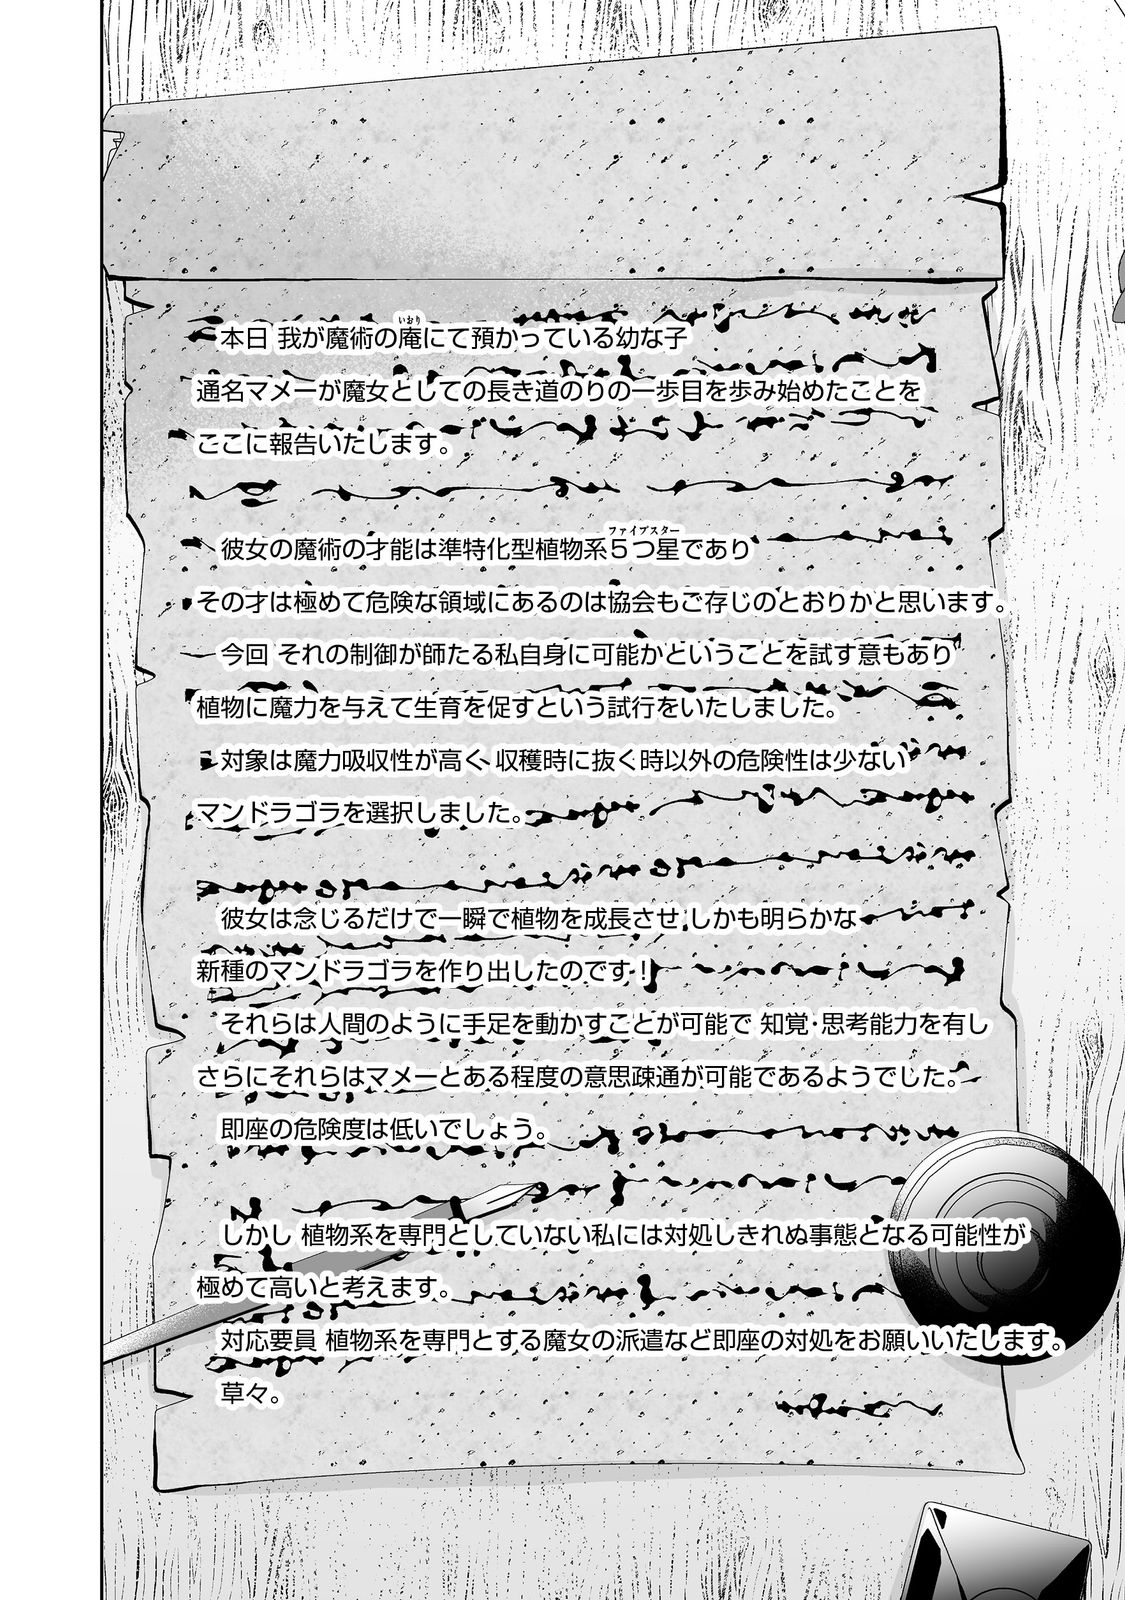 本日 我が魔術の庵にて預かっている幼な子
通名マメーが魔女としての長き道のりの一歩目を歩み始めたことを
ここに報告いたします。
彼女の魔術の才能は準特化型植物系5つ星であり
その才は極めて危険な領域にあるのは協会もご存じのとおりかと思います。
今回 それの制御が師たる私自身に可能かということを試す意もあり
植物に魔力を与えて生育を促すという試行をいたしました。
対象は魔力吸収性が高く 収穫時に抜く時以外の危険性は少ない
マンドラゴラを選択しました。
彼女は念じるだけで一瞬で植物を成長させ しかも明らかな
新種のマンドラゴラを作り出したのです!
それらは人間のように手足を動かすことが可能で 知覚・思考能力を有し
さらにそれらはマメーとある程度の意思疎通が可能であるようでした。
即座の危険度は低いでしょう。
しかし 植物系を専門としていない私には対処しきれぬ事態となる可能性が
極めて高いと考えます。
対応要員 植物系を専門とする魔女の派遣など即座の対処をお願いいたします。
草々。